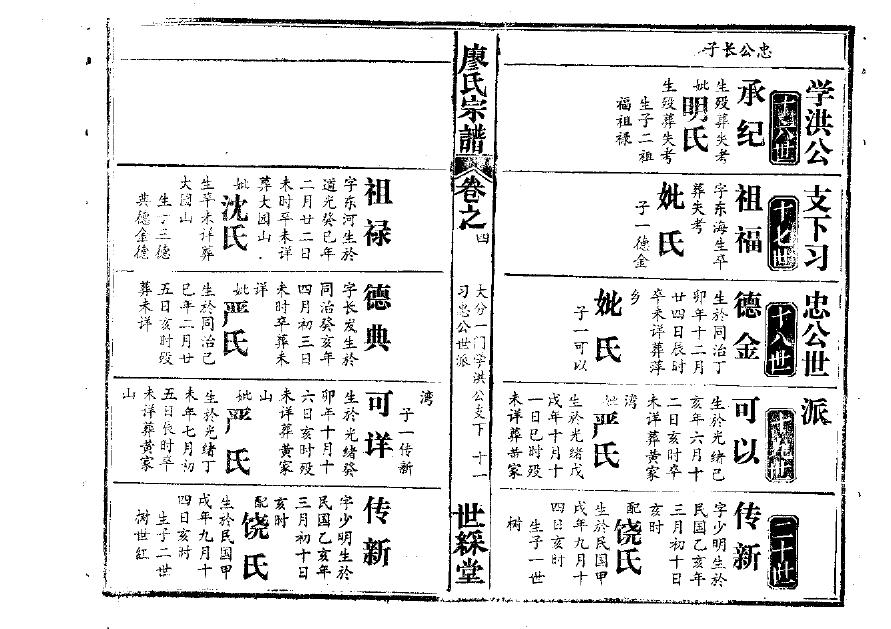 学洪公支下习忠公世派
忠公长子
十六世
承纪
生殁葬失考
妣
明氏
生殁葬失考
生子二祖
福祖禄
十七世
祖福
字东海生卒
葬失考
妣氏
子一德金
十八世
德金
生於同治丁
卯年十二月
廿四日辰时
卒未详葬萍
乡
妣氏
子一可以
十九世
可以
生於光绪己
亥年六月十
二日亥时卒
未详葬黄家
湾
妣
严氏
生於光绪戊
戌年十月十
一日巳时殁
未详葬黄家
湾
子一传新
二十世
传新
字少明生於
民国乙亥年
三月初十日
亥时
配
饶氏
生於民国甲
戌年九月十
四日亥时
生子一世
树
廖氏宗谱
卷之四
大分一门学洪公支下
习忠公世派
十一
世綵堂
祖禄
字东河生於
道光癸巳年
二月廿二日
未时卒未详
葬大园山
妣
沈氏
生卒未详葬
大园山
生子三德
典德金德
德典
字长发生於
同治癸亥年
四月初三日
未时卒葬未
详
妣
严氏
生於同治己
巳年二月廿
五日亥时殁
葬未详
可详
生於光绪癸
卯年十月十
六日亥时殁
未详葬黄家
山
妣
严氏
生於光绪丁
未年七月初
五日辰时卒
未详葬黄家
山
传新
字少明生於
民国乙亥年
三月初十日
亥时
配
饶氏
生於民国甲
戌年九月十
四日亥时
生子二世
树世红